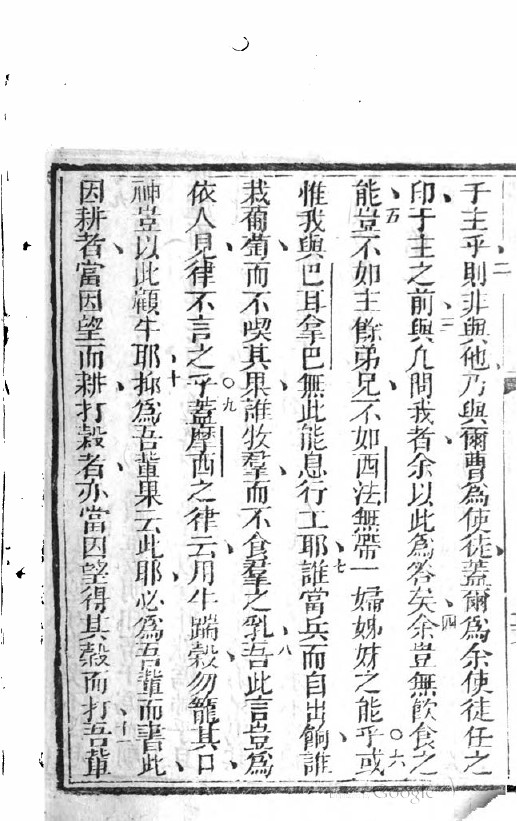 于主乎則非與他乃與爾曹為使徒蓋爾為余使徒任之
印于主之前與凢問我者余以此為答矣余豈無飲食之
能豈不如主餘弟兄不如西法無帶一婦姊妹之能乎或
惟我與巴耳拿巴無此能息行工耶誰當兵而自出餉誰
栽葡萄而不喫其果誰牧羣而不食羣之乳吾此言豈為
依人見律不言之乎蓋摩西之律云用牛踹穀勿籠其口
神豈以此顧牛耶抑為吾輩果云此耶必為吾輩而書此
因耕者當因望而耕打穀者亦當因望得其穀而打吾輩
二
三
四
五
六
七
八
九
十
十一
Google